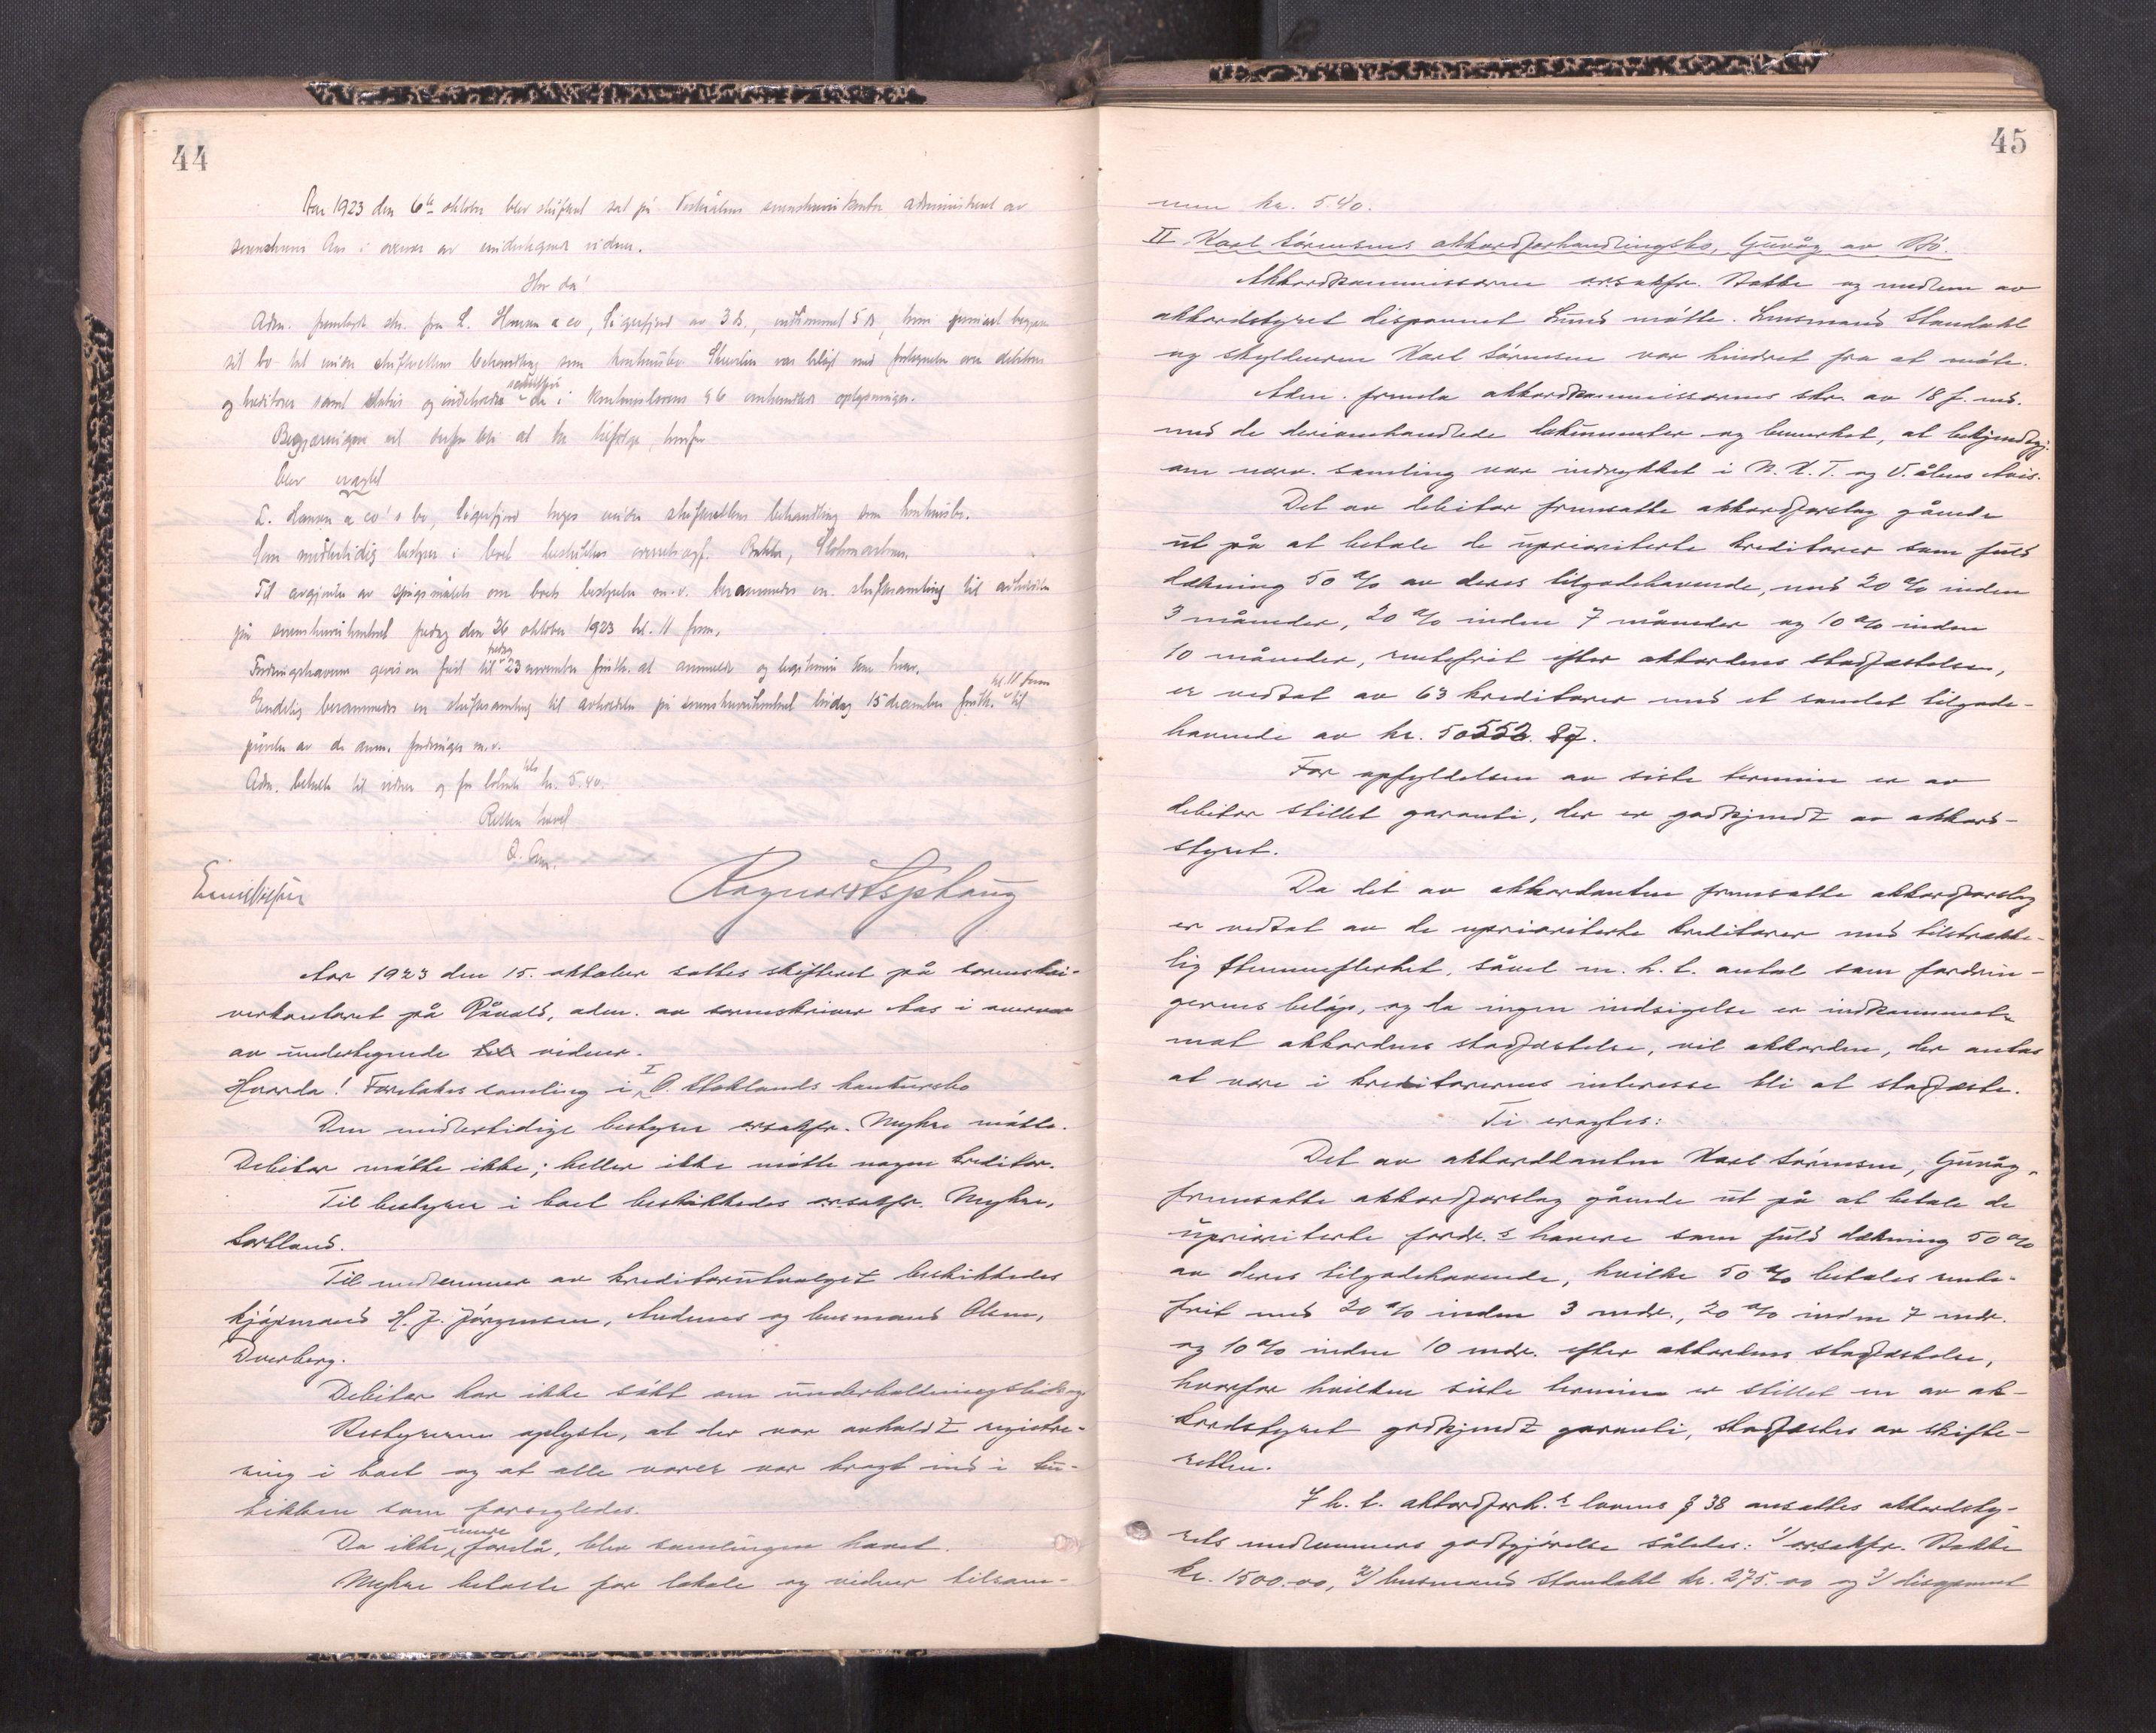 44
Aar 1923 den 6te oktober blev skifteret sat på Vesterålens sorenskriverkontor, administrert av
sorenskriver Aas i overvær av undertegnede vidner.
Hvor da!
Adm. fremlagde skr. fra L. Hansen & co, Sigerfjord av 3 ds., indkommet 5 ds, hvori firmaet begjærer
sit bo tat under skifterettens behandling som konkursbo. Skrivelsen var bilagt med fortegnelse over debitorer
og kreditorer samt status og indeholder de i konkurslovens § 6 omhandlede oplysninger.
Begjæringen vil derfor bli at ta tilfølge, hvorfor
blev eragtet
L. Hansen & co's bo, Sigerfjord tages under skifterettens behandling som konkursbo.
Som midlertidig bestyrer i boet beskikkes overretssagf. Stokke, Stokmarknes.
Til avgjørelse av spørgsmålet om boets bestyrelse m.v. berammedes en skiftesamling til avholdelse
på sorenskriverkontoret fredag den 26 oktober 1923 kl. 11 form.
Fordringshaverne gives en frist til fredag 23 november førstk. at anmelde og legitimere sine krav.
Endelig berammedes en skiftesamling til avholdelse på sorenskriverkontoret lørdag 15 december førstk. kl. 11 form til
prøvelse av de anm. fordringer m.v.
Adm. betalte til vidner og for lokale tils. kr. 5.40.
Retten hævet
O. Aas.
Ragnar
Aar 1923 den 15. oktober sattes skifteret på sorenskri-
verkontoret på Råvald, adm. av sorenskriver Aas i overvær
av undertegnede vidner.
Hvorda! Foretokes samling i I O. Stoklands konkursbo
Den midlertidige bestyrer orsakfr. Myhre møtte.
Debitor møtte ikke; heller ikke møtte nogen kreditor.
Til bestyrer i boet beskikkedes orsakfr. Myhre,
Sortland.
Til medlemmer av kreditorutvalget beskikkedes
kjøpmand H. J. Jørgensen, Andenes og lensmand Olsen,
Dverberg.
Debitor har ikke søkt om underholdningsbidrag
Bestyreren oplyste, at der var avholdt registre-
ring i boet og at alle varer var bragt ind i bu-
tikken som forsegledes.
Da ikke mere forelå, blev samlingen hævet.
Myhre betalte for lokale og vidner tilsam-
45
men kr. 5.40.
II. Karl Sørensens akkordforhandlingsbo, Guvåg av Bø.
Akkordkommissæren orsakfr. Stokke og medlem av
akkordstyret disponent Lund møtte. Lensmand Standahl
og skyldneren Karl Sørensen var hindret fra at møte.
Adm. fremla akkordkommissærens skr. av 18 f. md.
med de deriomhandlede dokumenter og bemerket, at bekjendtgj.
om nærv. samling var indrykket i N. K. T. og V.ålens Avis.
Det av debitor fremsatte akkordforslag gående
ut på at betale de uprioriterte kreditorer som fuld
dækning 50 % av deres tilgodehavende, med 20 % inden
3 måneder, 20 % inden 7 måneder og 10 % inden
10 måneder, rentefrit efter akkordens stadfæstelse,
er vedtat av 63 kreditorer med et samlet tilgode-
havende av kr. 50552.87.
For opfyldelsen av siste termin er av
debitor stillet garanti, der er godkjendt av akkord-
styret.
Da det av akkordanten fremsatte akkordforslag
er vedtat av de uprioriterte kreditorer med tilstrække-
lig stemmeflerhet, såvel m. h. t. antal som fordrin-
gernes beløp, og da ingen indsigelse er indkommet
mot akkordens stadfæstelse, vil akkorden, der antas
at være i kreditorernes interesse bli at stadfæste.
Ti eragtes:
Det av akkordanten Karl Sørensen, Guvåg,
fremsatte akkordforslag gående ut på at betale de
uprioriterte fordr.s havere som fuld dækning 50 %
av deres tilgodehavende, hvilke 50 % betales rente-
frit med 20 % inden 3 mdr., 20 % inden 7 mdr.
og 10 % inden 10 mdr. efter akkordens stadfæstelse,
hvorfor hvilken siste termin er stillet en av ak-
kordstyret godkjendt garanti, stadfæstes av skifte-
retten.
I h. t. akkordforh.s lovens § 38 ansattes akkordsty-
rets medlemmers godtgjørelse således: 1/ orsakfr. Stokke
kr. 1500.00, 2/ lensmand Standahl kr. 275.00 og 3/ disponent